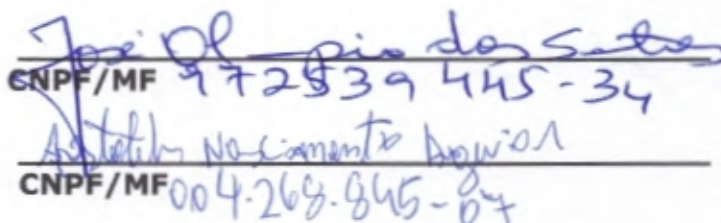 José Olympio dos Santos
CNPF/MF 972539 445-34
Nascimento
CNPF/MF 004.268.845-07